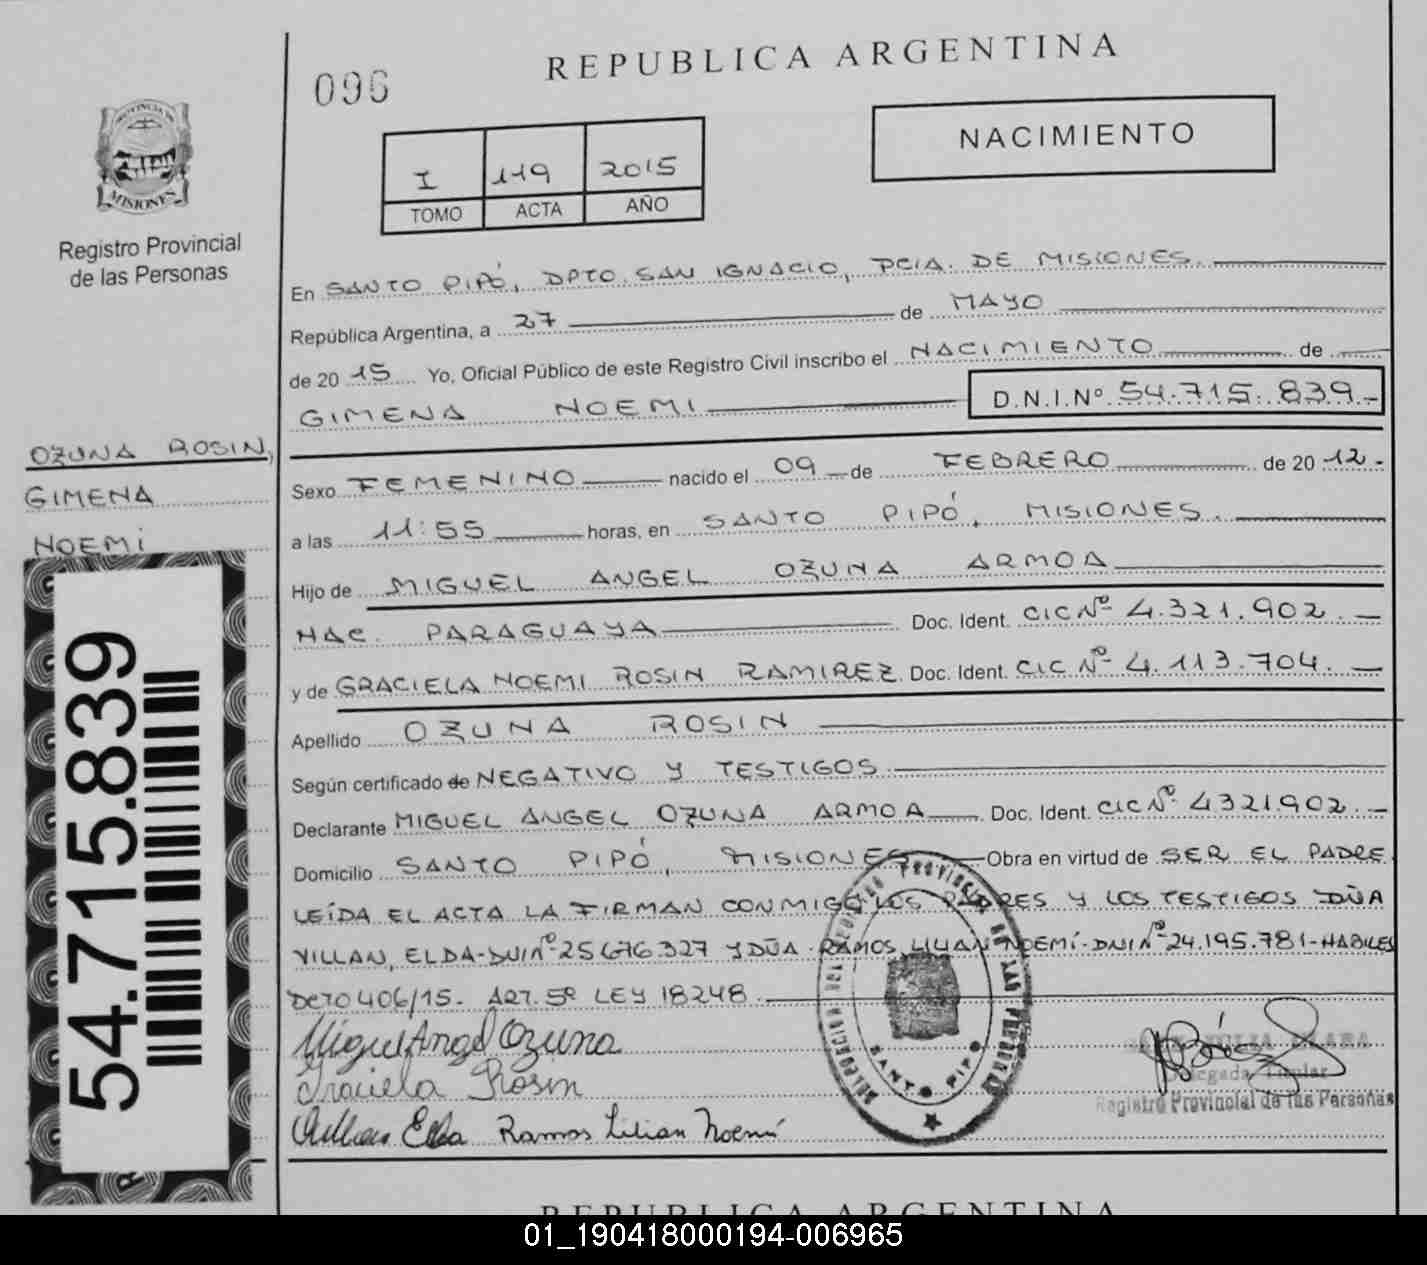 096
REPUBLICA ARGENTINA
NACIMIENTO
I 119 2015
TOMO ACTA AÑO
PROVINCIA DE
MISIONES
Registro Provincial
de las Personas
En SANTO PIPÓ, DPTO. SAN IGNACIO, PCIA. DE MISIONES.
República Argentina, a 27 de MAYO
de 20 15 Yo, Oficial Público de este Registro Civil inscribo el NACIMIENTO de
GIMENA NOEMI D.N.I.Nº 54.715.839-
OZUNA ROSIN,
GIMENA
NOEMI
54.715.839
Sexo FEMENINO nacido el 09 de FEBRERO de 20 12.-
a las 11:55 horas, en SANTO PIPÓ, MISIONES.
Hijo de MIGUEL ANGEL OZUNA ARMOA
NAC. PARAGUAYA Doc. Ident. CIC Nº 4.321.902.-
y de GRACIELA NOEMI ROSIN RAMIREZ. Doc. Ident. CIC Nº 4.113.704.-
Apellido OZUNA ROSIN
Según certificado de NEGATIVO Y TESTIGOS
Declarante MIGUEL ANGEL OZUNA ARMOA Doc. Ident. CIC Nº 4321.902.-
Domicilio SANTO PIPÓ, MISIONES Obra en virtud de SER EL PADRE
LEÍDA EL ACTA LA FIRMAN CONMIGO LOS PADRES Y LOS TESTIGOS DÑA
VILLAN, ELDA-DNI Nº 25676.327 Y DÑA RAMOS, LILIAN NOEMÍ-DNI Nº 24.195.781-HABILES
DCTO 406/15. ART. 5º LEY 18248.
Miguel Angel Ozuna
Graciela Rosin
Villan Elda Ramos Lilian Noemí
SANTO PIPO
Delegada Titular
Registro Provincial de las Personas
REPUBLICA ARGENTINA
01_190418000194-006965